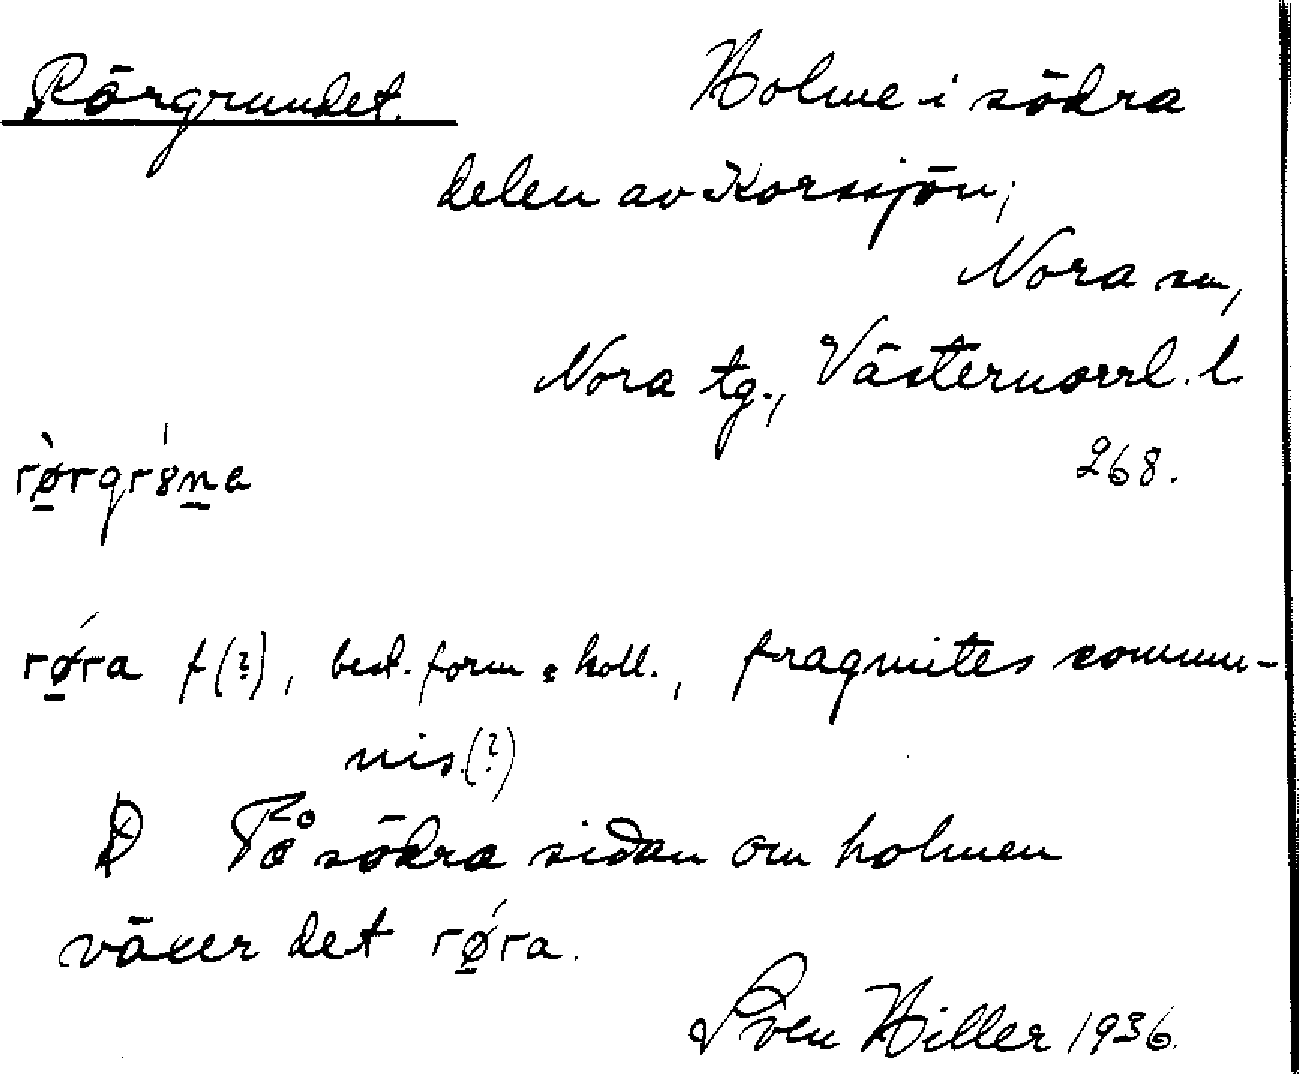 Rörgrundet. Holme i södra
delen av Korssjön,
Nora sn,
Nora tg., Västernorrl. l.
268.
rø̀rgrźna
rǿra f(?), best. form = koll., fragmites commu-
nis.(?)
På södra sidan om holmen
växer det rǿra.
Sven Hiller 1936.